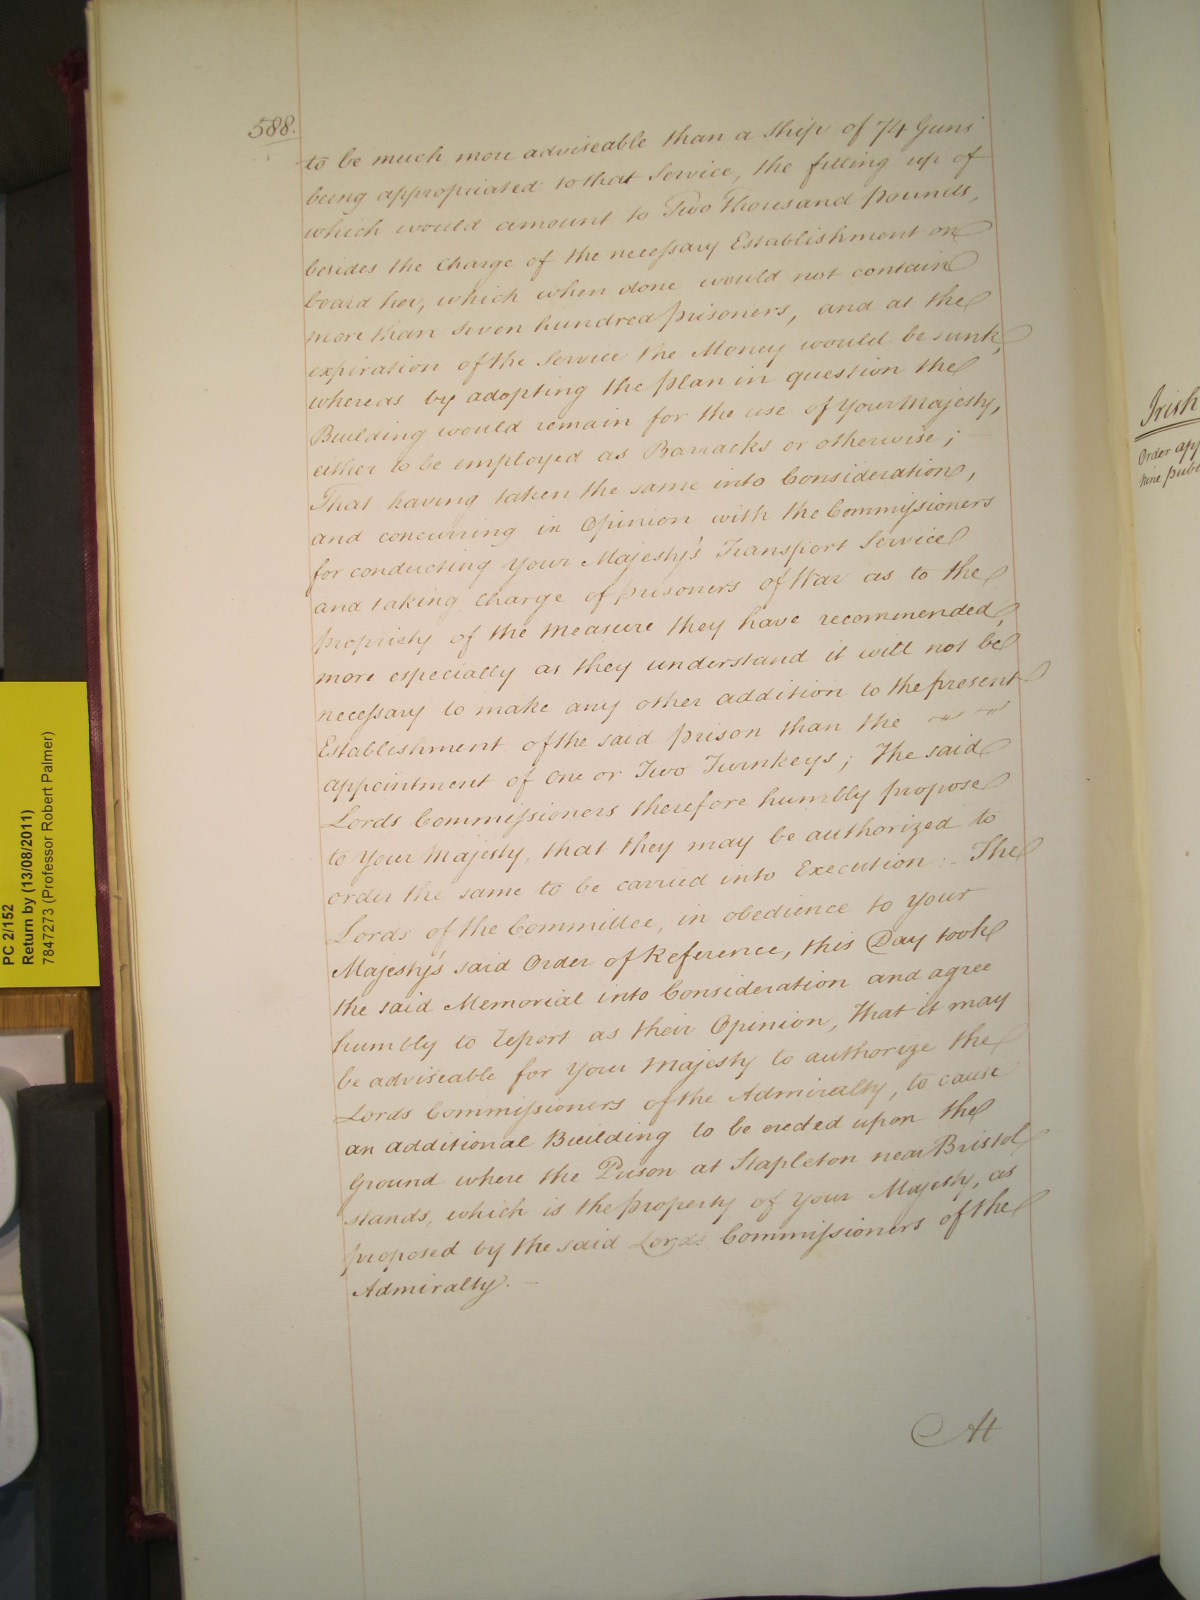 588.
to be much more adviseable than a Ship of 74 Guns
being appropriated to that Service, the fitting up of
which would amount to Two Thousand Pounds,
besides the Charge of the necessary Establishment on
board her, which when done would not contain
more than Seven hundred prisoners, and at the
expiration of the Service the Money would be sunk,
whereas by adopting the plan in question the
Building would remain for the use of Your Majesty,
either to be employed as Barracks or otherwise;
That having taken the same into Consideration,
and concurring in Opinion with the Commissioners
for conducting Your Majesty's Transport Service
and taking Charge of prisoners of War as to the
propriety of the Measure they have recommended,
more especially as they understand it will not be
necessary to make any other addition to the present
Establishment of the said prison than the
appointment of One or Two Turnkeys; The said
Lords Commissioners therefore humbly propose
to Your Majesty, that they may be authorized to
order the same to be carried into Execution. The
Lords of the Committee, in obedience to Your
Majesty's said Order of Reference, this Day took
the said Memorial into Consideration and agree
humbly to report as their Opinion, That it may
be adviseable for Your Majesty to authorize the
Lords Commissioners of the Admiralty, to cause
an additional Building to be erected upon the
Ground where the Prison at Stapleton near Bristol
stands, which is the property of Your Majesty, as
proposed by the said Lords Commissioners of the
Admiralty. –
At
Irish
Order app
Nine pub
PC 2/152
Return by (13/08/2011)
7847273 (Professor Robert Palmer)